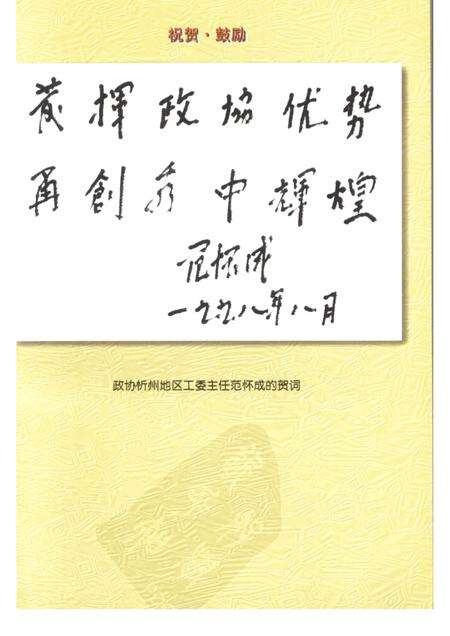 祝贺·鼓励
发揮政協优势
再創秀中輝煌
范怀成
一九九八年八月
政协忻州地区工委主任范怀成的贺词